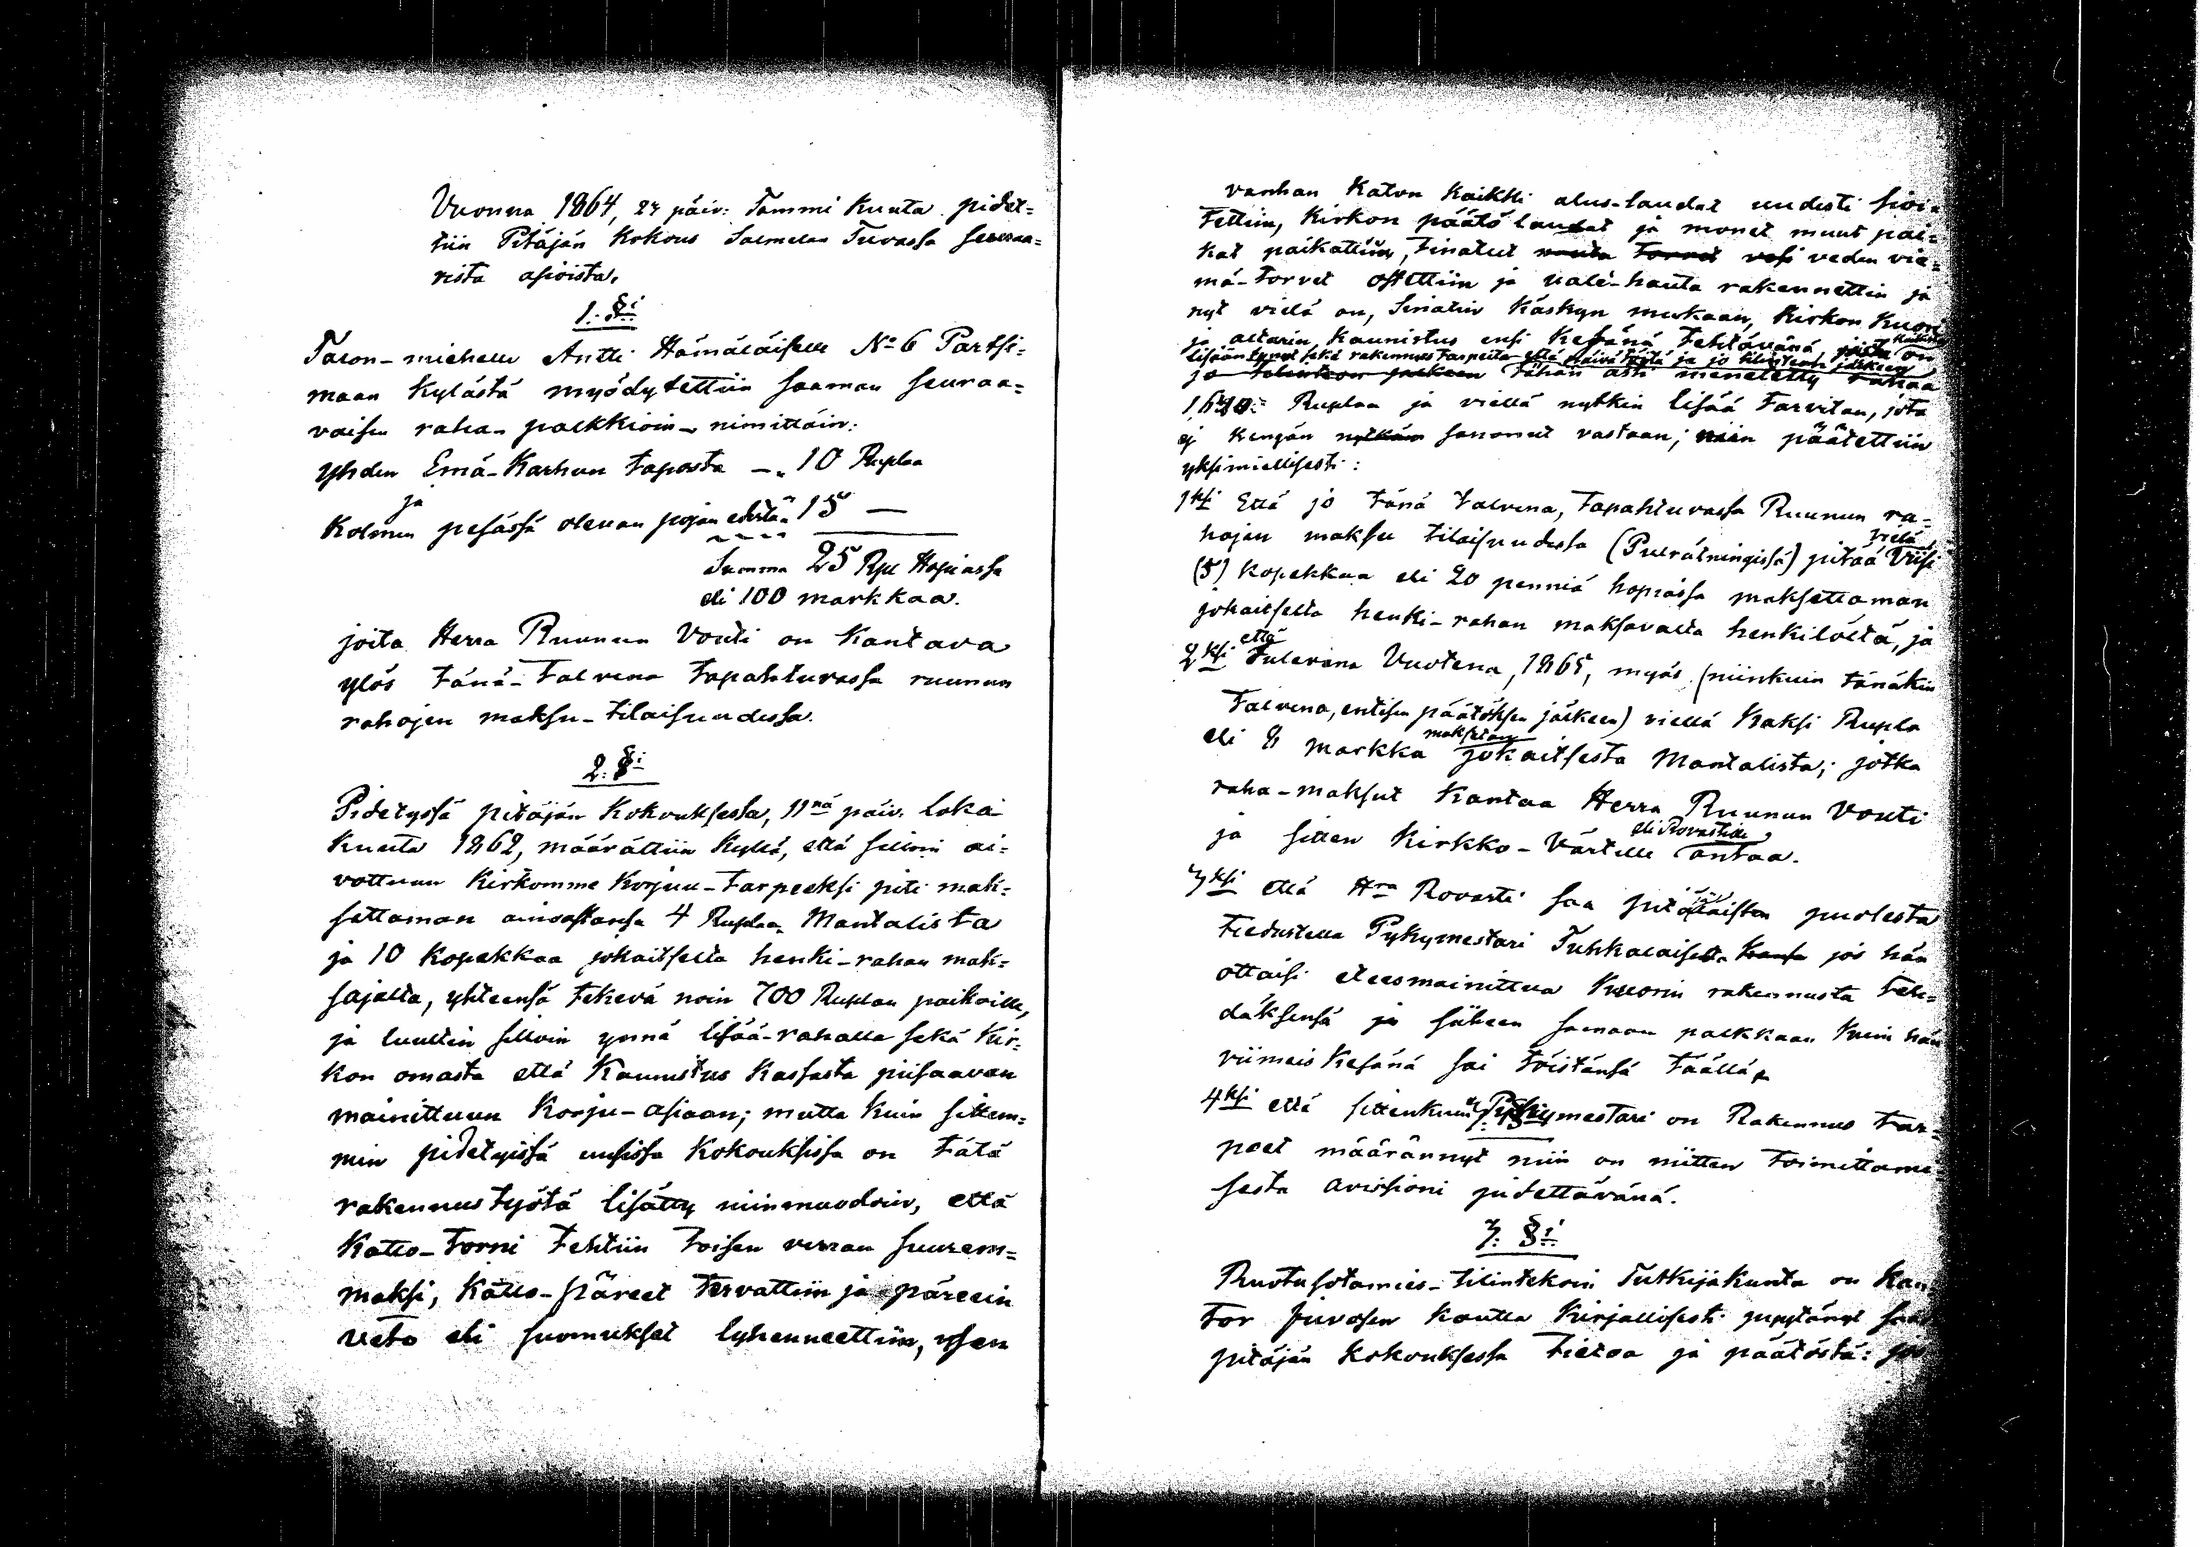 Vuonna 1864, 24 päiv: Tammi Kuuta pidet=
tiin Pitäjän Kokous Salmelan Tuvassa seuraa=
vista asioista.
1. §i
Talon-miehelle Antti Hämäläiselle No 6 Partsi=
maan Kylästä myödytettiin saaman seuraa=
vaisen raha-palkkioin- nimittäin:
yhden Emä-Karhun taposta — 10 Ruplaa
ja
Kolmen pesässä olevan pojan edestä 15 —
Summa 25 Rpl Hopiassa
eli 100 markkaa.
joita Herra Ruunun Vouti on Kantava
ylös tänä-Talvena tapahtuvassa ruunun
rahojen maksu-tilaisuudessa.
2. §i
Pidetyssä pitäjän Kokouksessa, 11nä päiv. Loka
Kuuta 1862, määrättiin Kyllä, että silloin ai=
vottuun Kirkomme Korjuu-tarpeeksi piti mak=
settaman ainoastansa 4 Ruplaa Mantalista
ja 10 Kopekkaa jokaitselta henki-rahan mak=
sajalta, yhteensä tekevä noin 700 Ruplan paikoille,
ja luultiin silloin ynnä lisää-rahalla sekä Kir=
kon omasta että Kaunistus Kassasta piisaavan
mainittuun Korju-asiaan; mutta Kuin sittem=
min pidetyissä uusissa Kokouksissa on tätä
rakennus työtä lisätty niinmuodoin, että
Katto-Torni tehtiin toisen verran suurem=
maksi, Katto-päreet tervattiin ja päreein
veto eli suomukset lyhenneettiin, ysen
vanhan Katon Kaikki alus-laudat uudesti sioi=
tettiin, Kirkon päätö laudat ja monet muut pai=
kat paikattiin, tinatut veden vie=
mä-torvet ostettiin ja vale-hauta rakennettiin ja
nyt vielä on, Senatin Käskyn mukaan, Kirkon Kuori
ja altarin Kaunistus ensi Kesänä tehtävänä, joita on
lisääntynyt sekä rakennus tarpeita että päivätöitä ja jo tilinteon jälkeen
jo tilinteon jälkeen tähän asti menetetty rahaa
Ruplaa ja viellä nytkin lisää tarvitan, jota
ej Kengän sanonut vastaan; niin päätettiin
yksimiellisesti:
1ksi Että jo tänä talvena, tapahtuvassa Ruunun ra=
vielä
hojen maksu tilaisuudessa (Puerätningissä) pitää Viisi
(5) Kopekkaa eli 20 penniä hopiassa maksettaman
jokaitselta henki-rahan maksavalta henkilöltä, ja
että
2ksi Tulevana Vuotena, 1865, myös (niinkuin tänäkin
Talvena, entisen päätöksen jälkeen) viellä Kaksi Rupla
maksetan
eli 8 markka jokaitsesta Mantalista; jotka
raha-maksut Kantaa Herra Ruunun Vouti
eli Rovastille
ja sitten Kirkko-Värtille antaa.
3ksi että Hra Rovasti saa pitäjäläisten puolesta
tiedustella Pykymestari Tuhkalaiselta jos hän
ottaisi eteesmainittua Kuorin rakennusta teh=
däksensä ja siiheen samaan palkkaan Kuin hän
viimeis Kesänä sai töistänsä täällä
4ksi että sittenkuin Pykymestari on Rakennus tar=
peet määrännyt niin on niitten toimittami
sesta avissioni pidettävänä.
3. §i
Ruotusotamies-tilintekoin Tutkijakunta on Kan
tor Juvosen Kautta Kirjallisesti pyytänyt saa
pitäjän Kokouksessa Tietoa ja päätöstä: jos